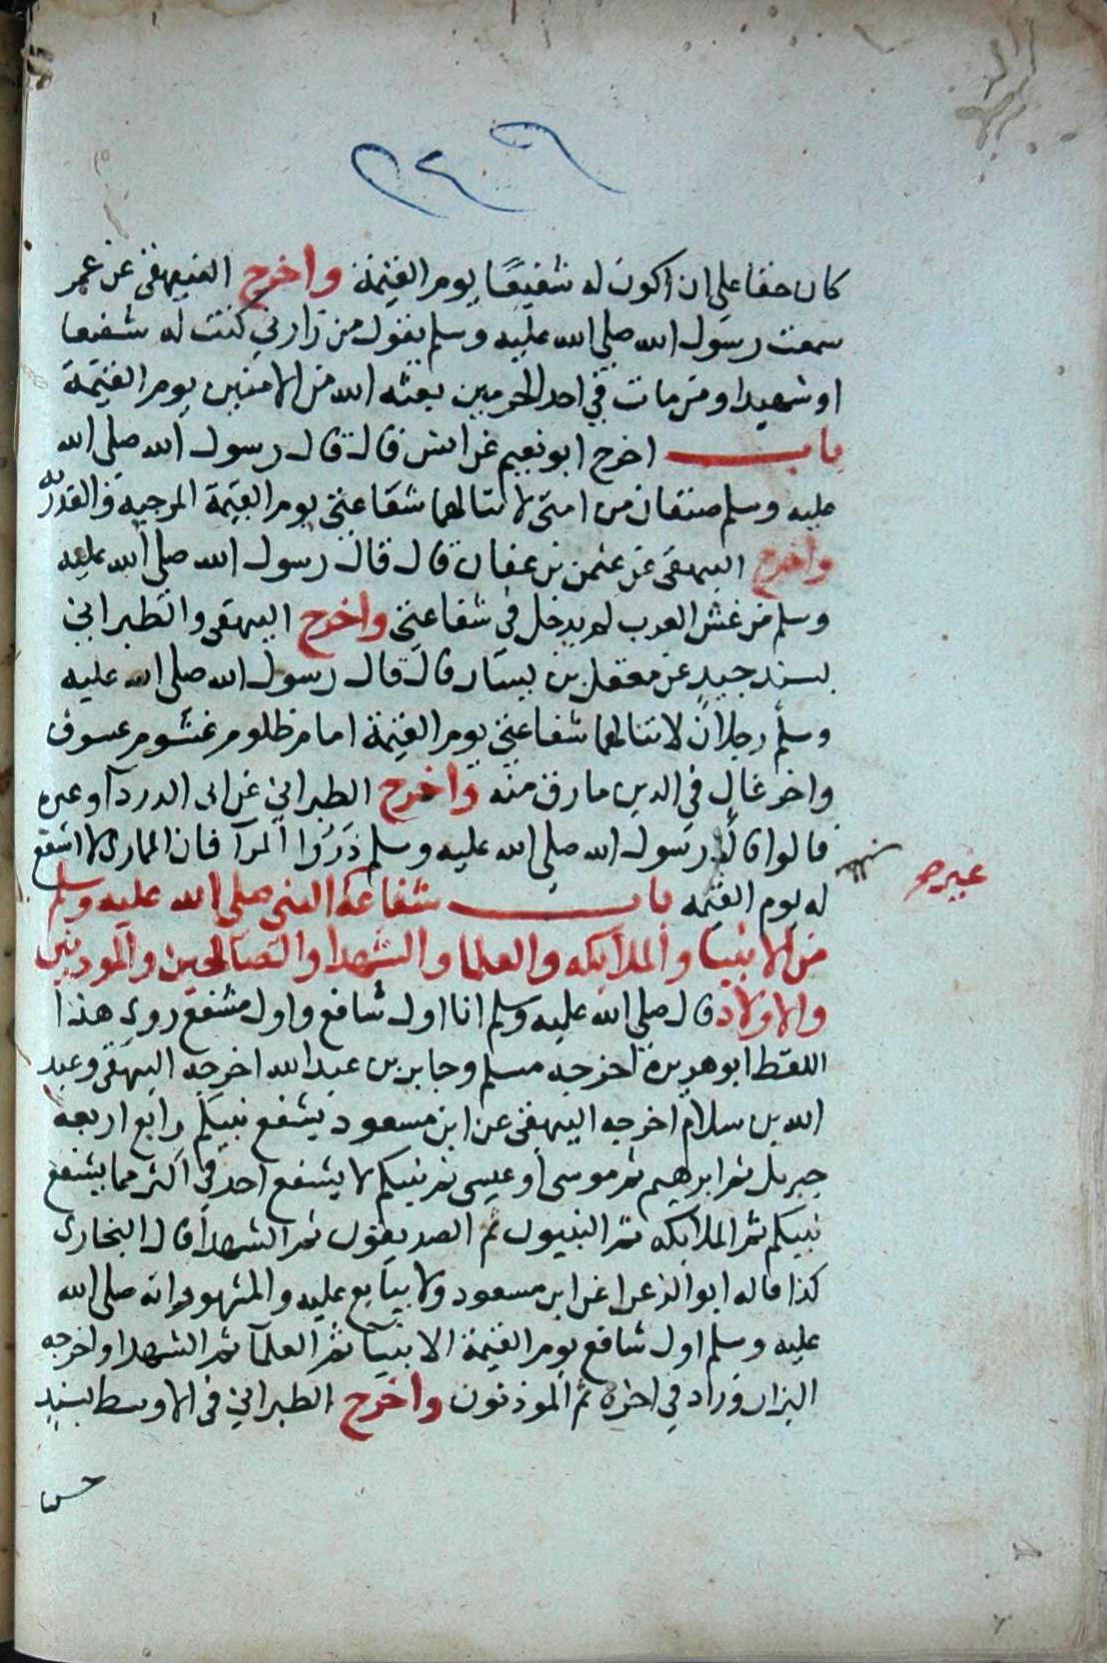 ٢٤٦
كان حقا على ان اكون له شفيعا يوم القيمة واخرج البيهقى عن عمر
سمعت رسول الله صلى الله عليه وسلم يقول من زارني كنت له شفيعا
او شهيدا ومن مات في احد الحرمين بعثه الله من الامنين يوم القيمة
باب اخرج ابو نعيم عن انس قال قال رسول الله صلى الله
عليه وسلم صنفان من امتى لا تنالهما شفاعتي يوم القيمة المرجية والقدرية
واخرج البيهقى عن عثمن بن عفان قال قال رسول الله صلى الله عليه
وسلم من غش العرب لم يدخل في شفاعتي واخرج البيهقى والطبراني
بسند جيد عن معقل بن يسار قال قال رسول الله صلى الله عليه
وسلم رجلان لا تنالهما شفاعتي يوم القيمة امام ظلوم غشوم عسوف
واخر غال في الدين مارق منه واخرج الطبراني عن ابى الدردآ وغيره
قالوا قال رسول الله صلى الله عليه وسلم ذروا المرآ فان الممارى لا اشفع
له يوم القيمه باب شفاعة النبى صلى الله عليه وسلم
من الانبيا والملايكه والعلما والشهدا والصالحين والموذنين
والاولاد قال صلى الله عليه وسلم انا اول شافع واول مشفع روى هذا
اللفظ ابو هريرة اخرجه مسلم وجابر بن عبد الله اخرجه البيهقى وعبد
الله بن سلام اخرجه البيهقى عن ابن مسعود يشفع نبيكم رابع اربعة
جبريل ثم ابرهيم ثم موسى او عيسى ثم نبيكم لا يشفع احد في اكثر مما يشفع
نبيكم ثم الملايكه ثم النبيون ثم الصديقون ثم الشهدا قال البخارى
كذا قاله ابو الزعرا عن ابن مسعود ولا يتابع عليه والمشهور انه صلى الله
عليه وسلم اول شافع يوم القيمة الانبيا ثم العلمآ ثم الشهدا واخرجه
البزار وزاد في اخره ثم الموذنون واخرج الطبراني فى الاوسط بسند
حسن